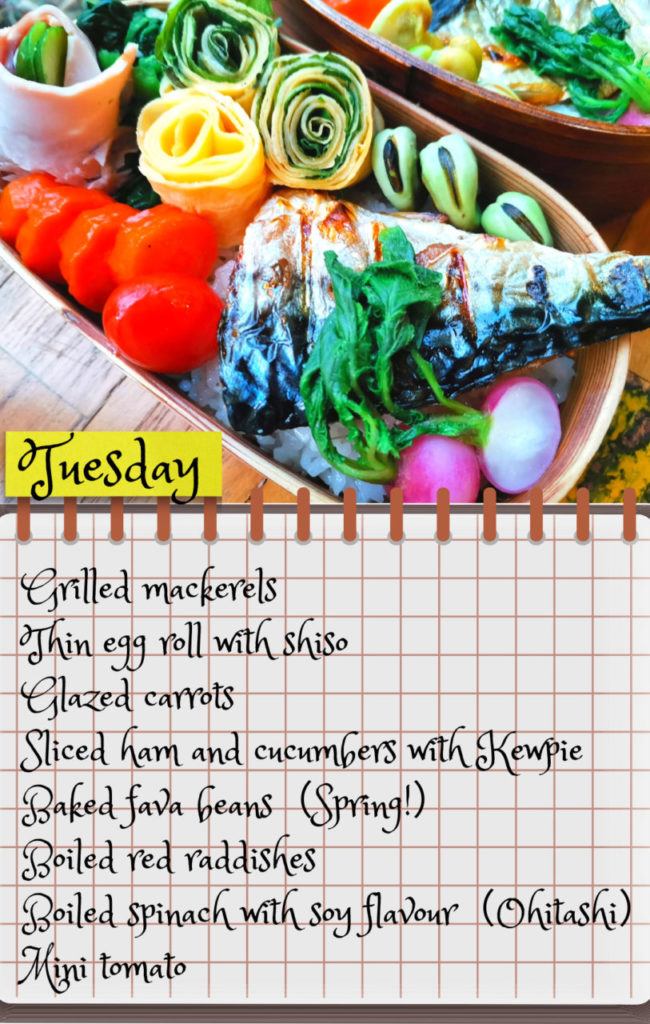 Tuesday
Grilled mackerels
Thin egg roll with shiso
Glazed carrots
Sliced ham and cucumbers with Kewpie
Baked fava beans (Spring!)
Boiled red raddishes
Boiled spinach with soy flavour (Ohitashi)
Mini tomato